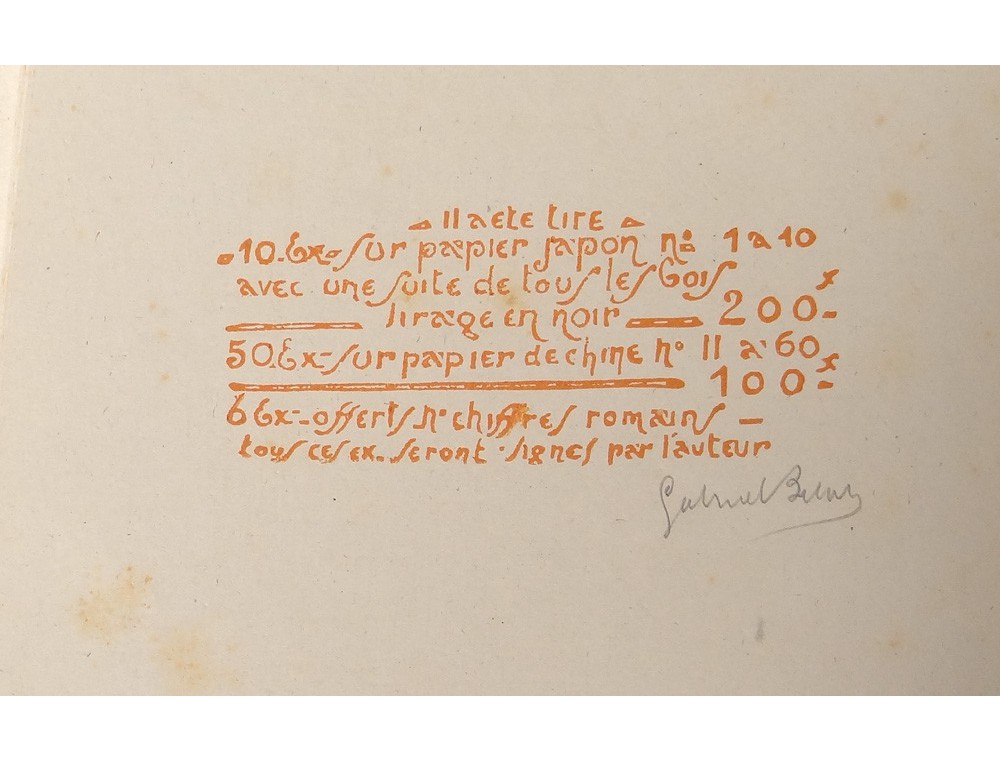 Il a ete tire
10.Ex-sur papier japon no 1 a 10
avec une suite de tous les bois
tirage en noir 200 f-
50.Ex-sur papier de chine no 11 a 60
100 f-
6 Ex-offerts.No chiffres romains -
tous ces ex. seront signes par l'auteur
Gabriel